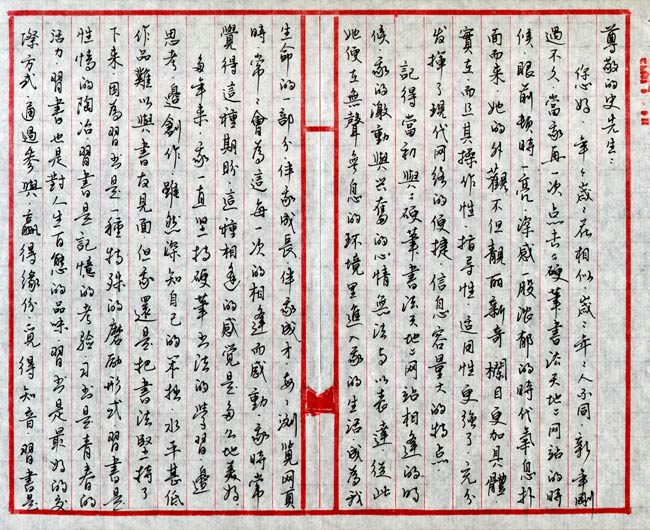 尊敬的史先生：
你好 年々歲々花相似·歲々年々人不同·新年剛
過不久當我再一次点击《硬筆書法天地》网站的時
候·眼前頓時一亮·深感一股浓郁的時代氣息扑
面而来她的外觀不但靚麗新奇欄目更加具體
實在而且其操作性·指导性·适用性更強了·充分
发揮了現代网络的便捷·信息容量大的特点
記得當初與《硬筆書法天地》网站相逢的時
候·我的激動與兴奮的心情無法与以表達·從此
她便在無聲無息的环境里進入我的生活·成為我
生命的一部分伴我成長·伴我成才·每々浏覽网頁
時常々會為這每一次的相逢而感動·我時常
覺得這種期盼·這種相逢的感觉是多么地美好
多年来·我一直坚持硬筆书法的学習·邊
思考·邊創作·雖然深知自己的笨拙·水平甚低
作品難以與書友見面但我還是把書法坚持了
下来·因為習书是一種特殊的磨励形式習書是
性情的陶冶·習書是記憶的考验習书是青春的
活力·習書也是對人生百態的品味·習书是最好的交
際方式·通過参與·贏得缘份·覓得知音習書是